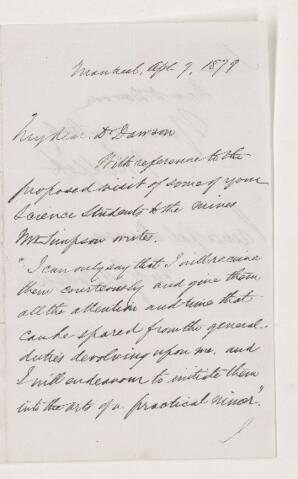 Montreal, Apl. 7, 1879
My dear Dr Dawson
With reference to the
proposed visit of some of your
Science Students to the mines
Mr Simpson writes.
"I can only say that I will receive
them courteously and give them
all the attention and time that
can be spared from the general
duties devolving upon me, and
I will endeavour to initiate them
into the arts of a practical miner".